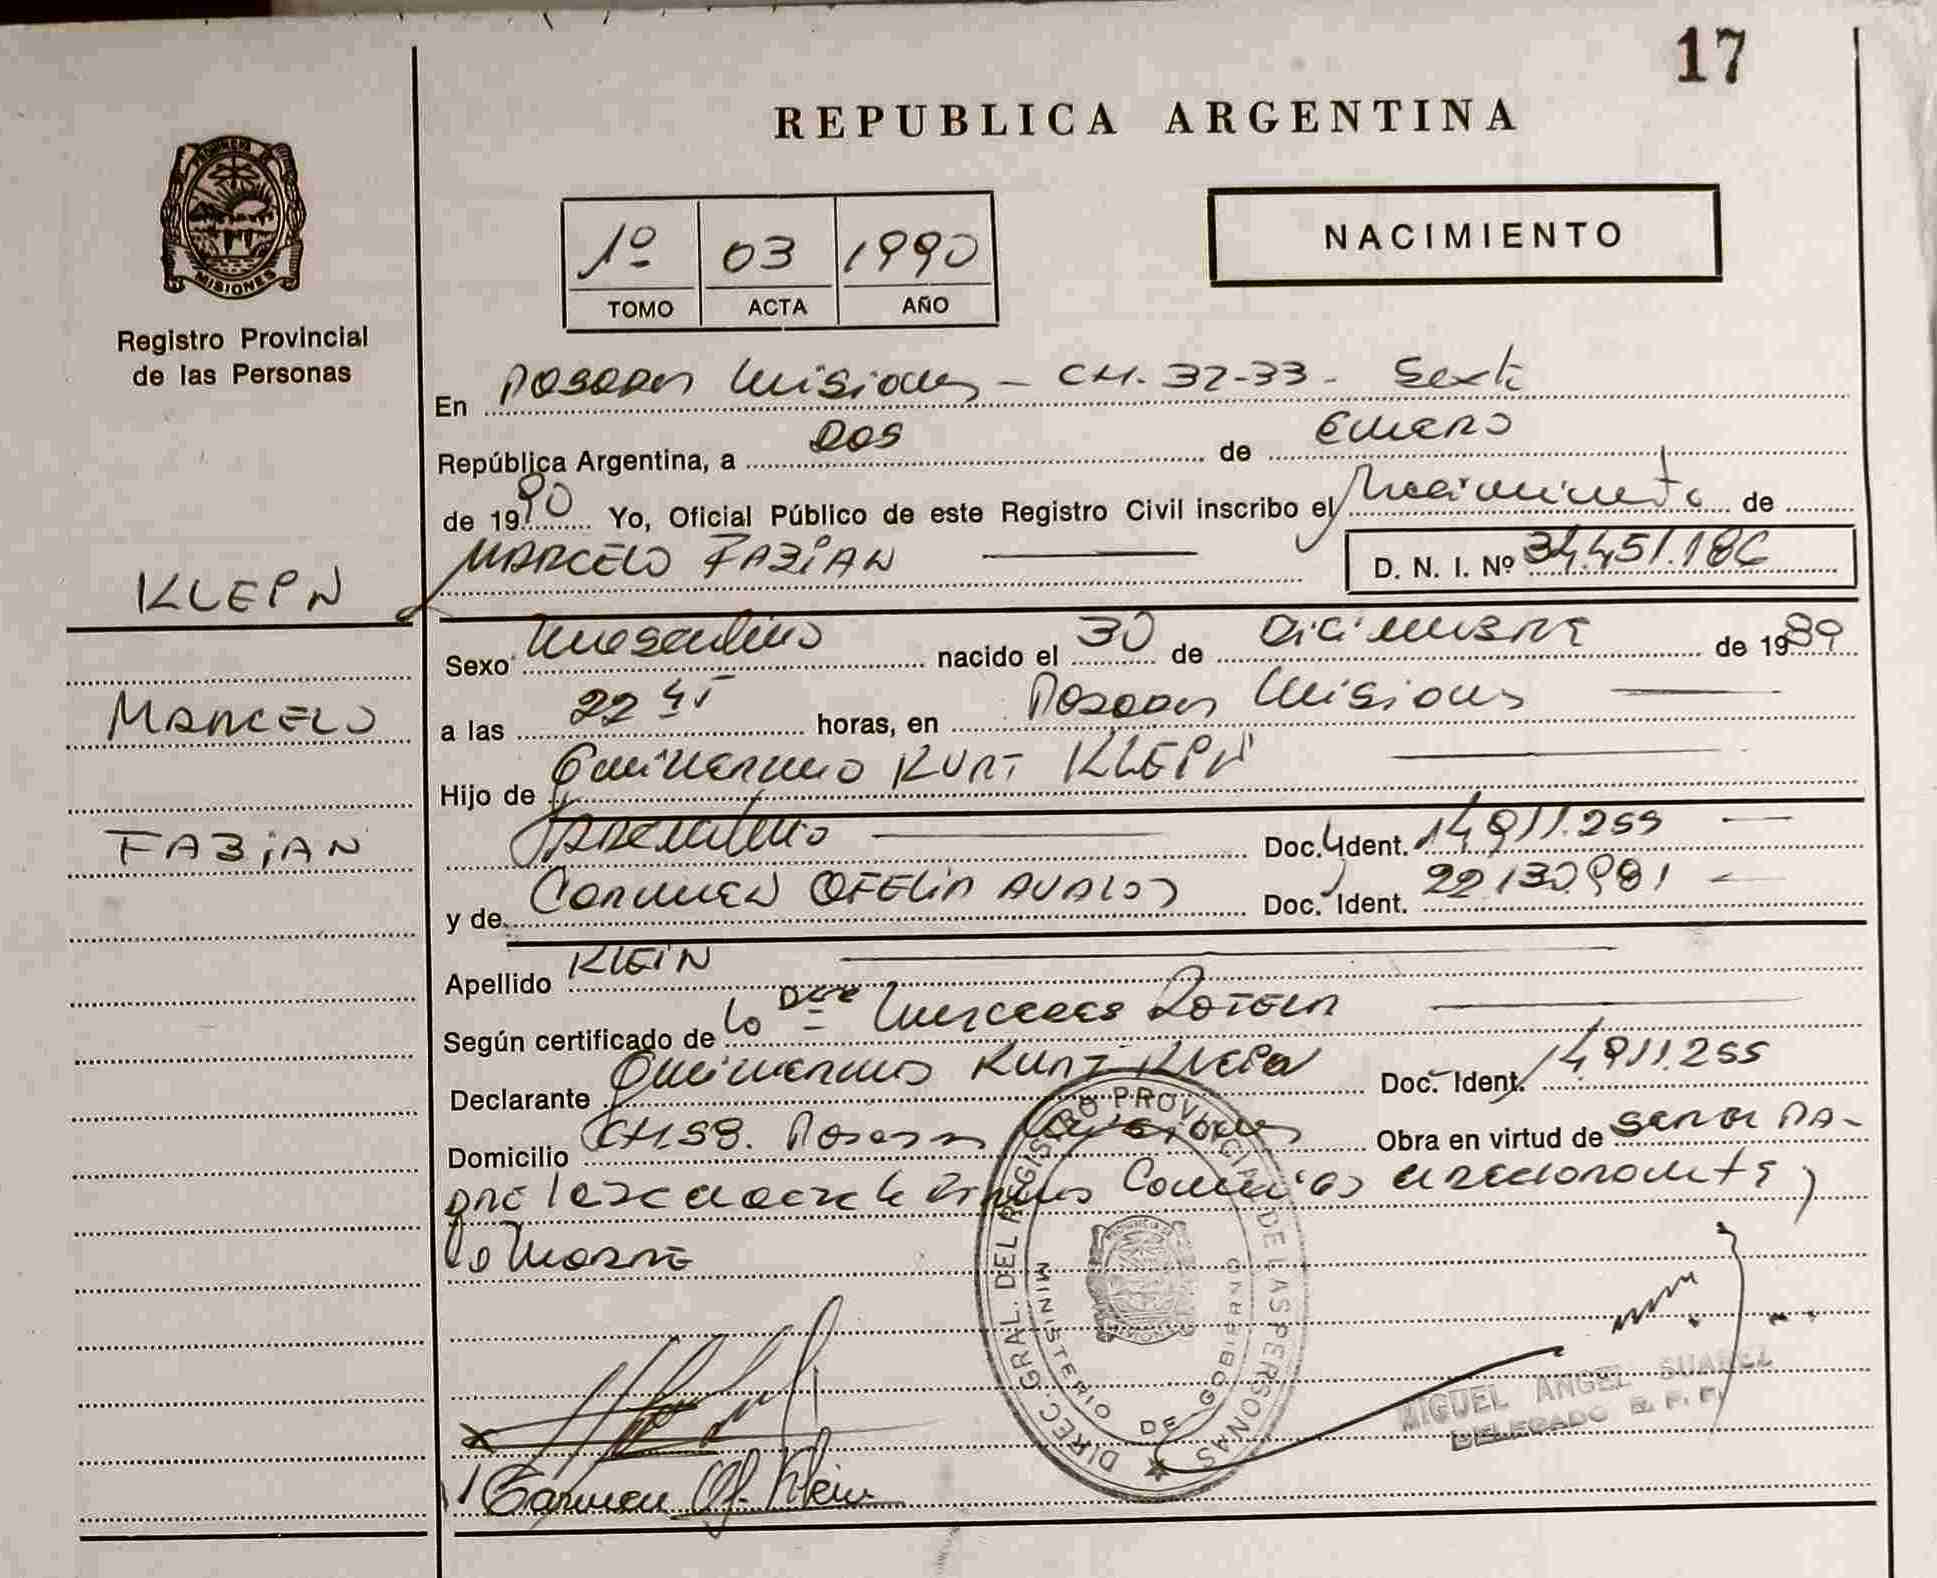 17
REPUBLICA ARGENTINA
PROVINCIA DE MISIONES
Registro Provincial
de las Personas
NACIMIENTO
1º 03 1990
TOMO ACTA AÑO
En Posadas Misiones - CH. 32-33 - Sexta
República Argentina, a Dos de Enero
de 1990 Yo, Oficial Público de este Registro Civil inscribo el Nacimiento de
MARCELO FABIAN D. N. I. Nº 34.451.186
KLEIN
MARCELO
FABIAN
Sexo Masculino nacido el 30 de Diciembre de 1989
a las 22 45 horas, en Posadas Misiones
Hijo de Guillermo KURT KLEIN
Argentino Doc. Ident. 14.911.255
y de Carmen OFELIA AVALOS Doc. Ident. 22.130.981
Apellido KLEIN
Según certificado de la Dra Mercedes Rotela
Declarante Guillermo Kurt Klein Doc. Ident. 14.911.255
Domicilio CH.59. Posadas Misiones Obra en virtud de ser el PA-
DRE
la Madre
Carmen Of. Klein
DIREC. GRAL. DEL REGISTRO PROVINCIAL DE LAS PERSONAS
MINISTERIO DE GOBIERNO
MIGUEL ANGEL SUAREZ
DELEGADO